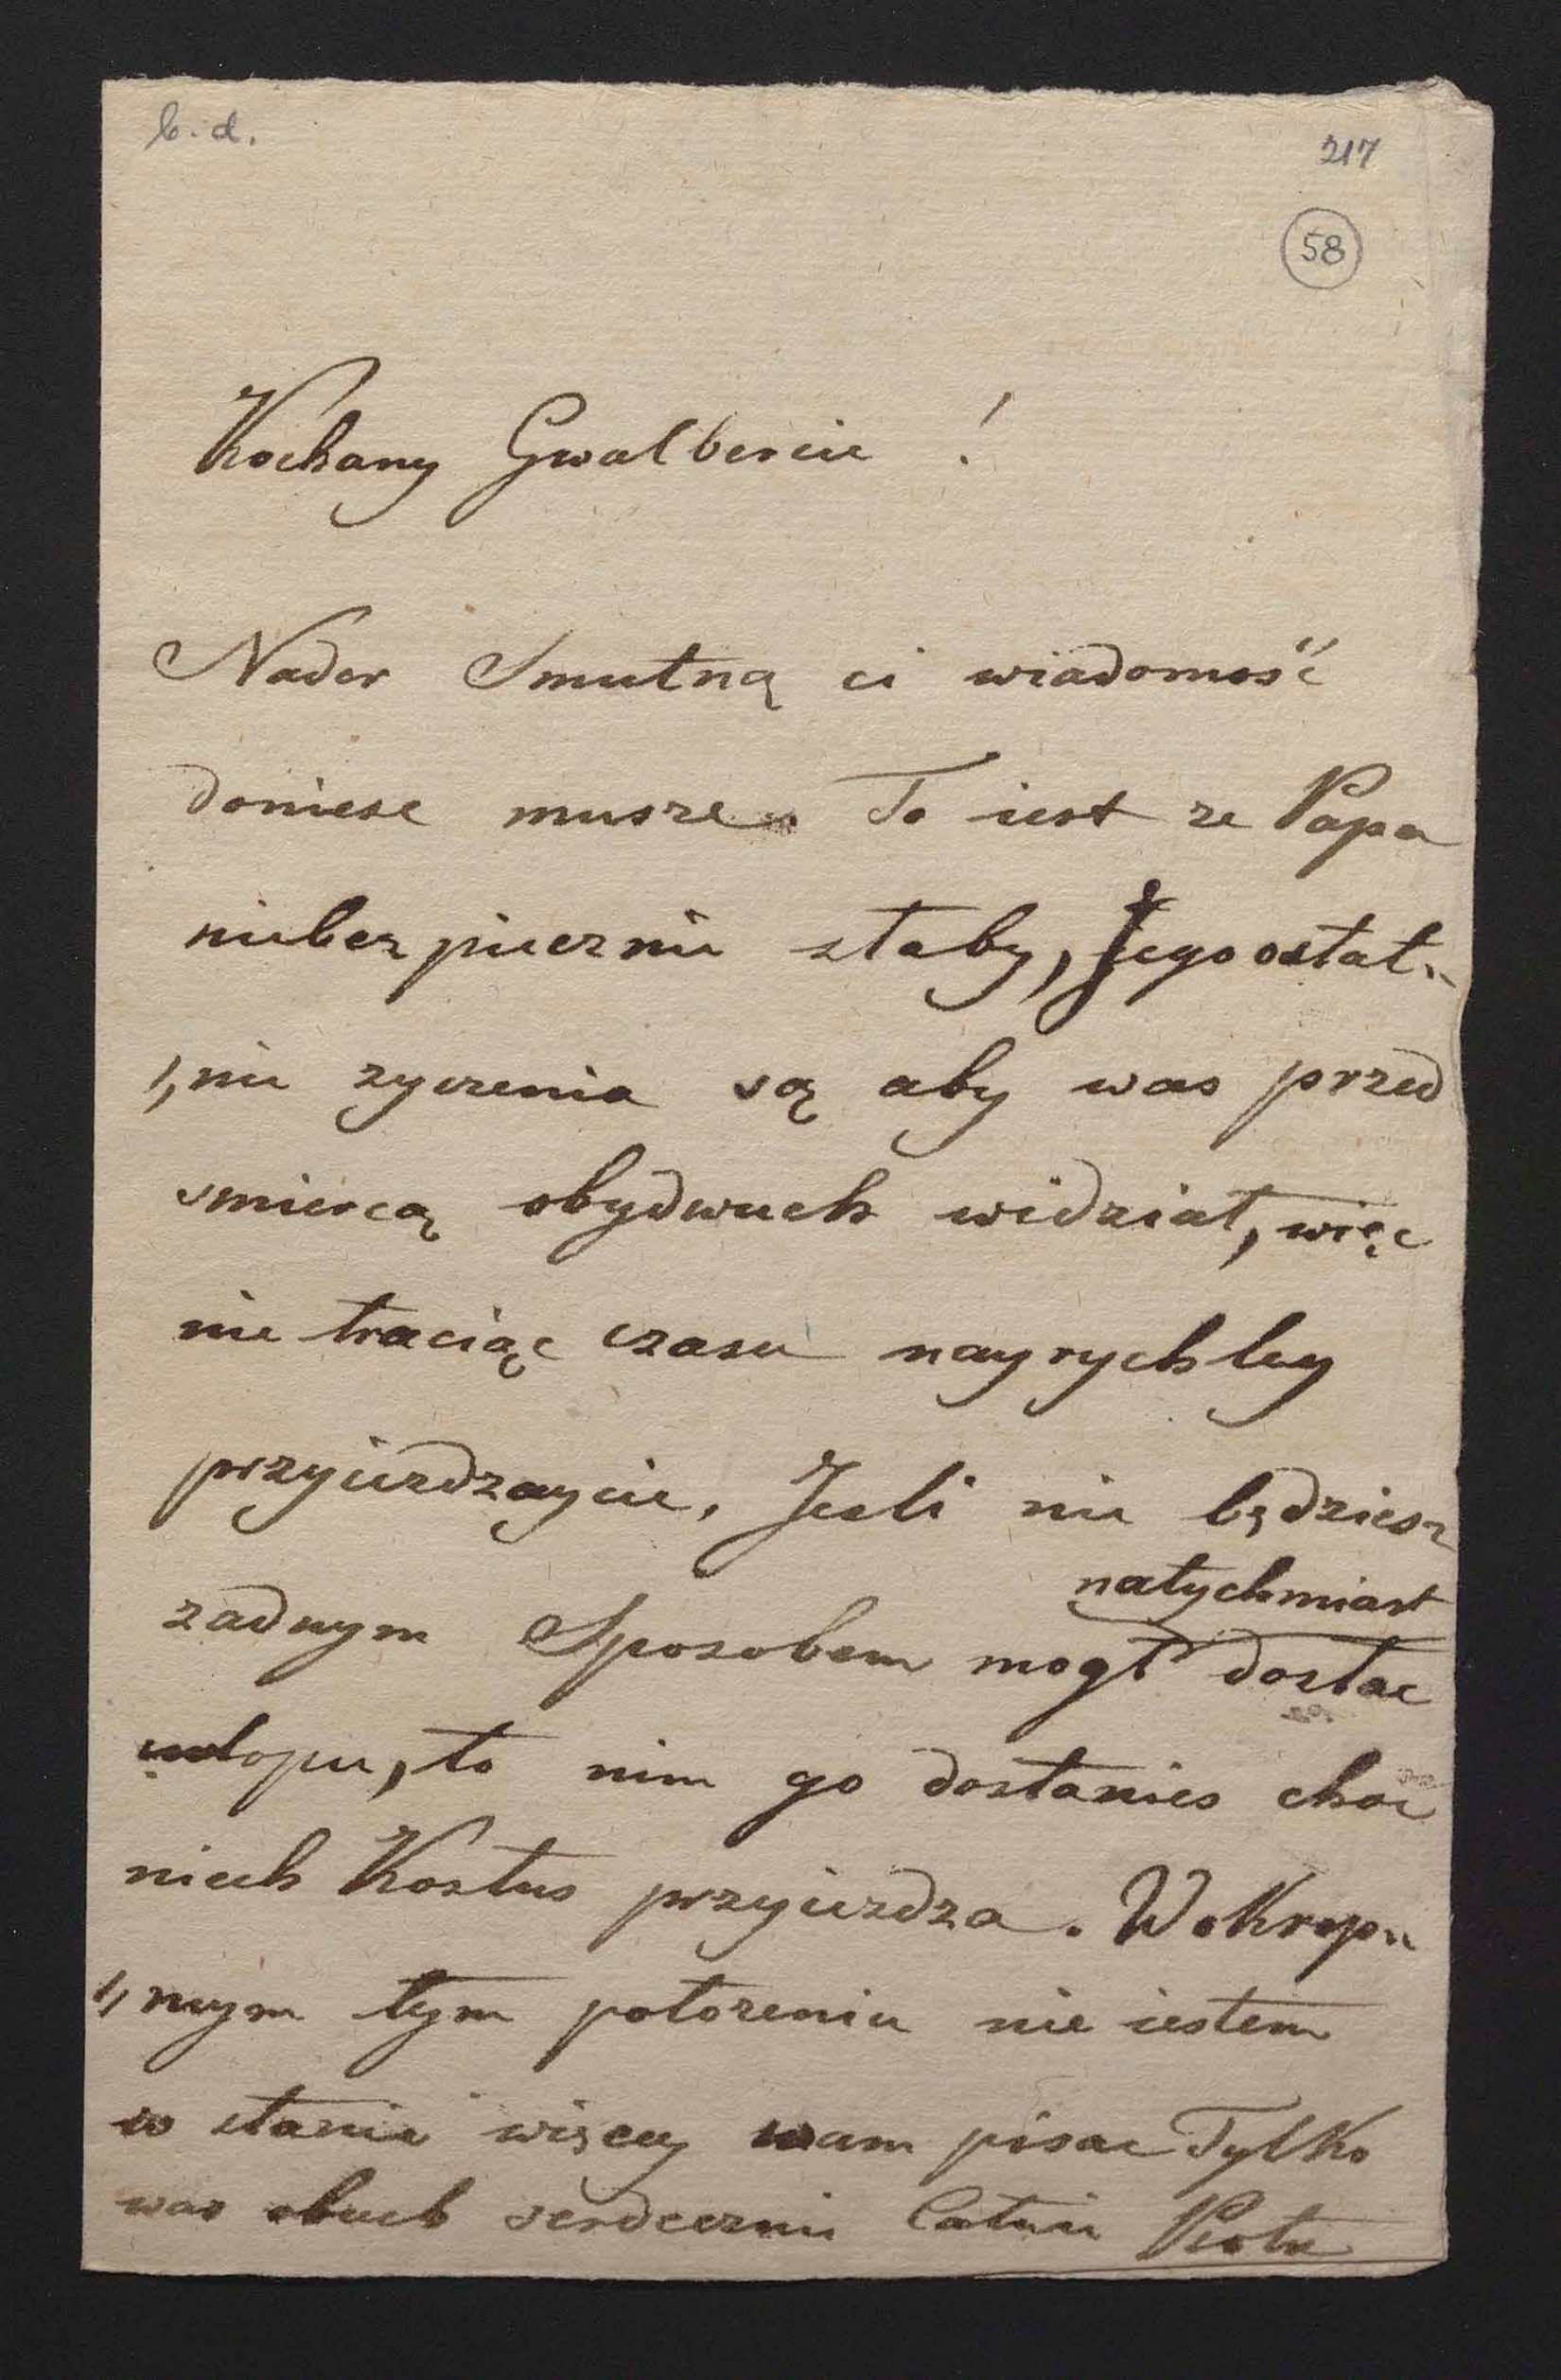 b. d.
217
58
Kochany Gwalbercie !
Nader Smutną ci wiadomość
doniesc musze. To iest ze Papa
niebezpiecznie słaby, Jego ostat„
„nie zyczenia są aby was przed
smiercą obydwuch widział, więc
nie traciąc czasu nayrychley
przyiezdzaycie. Jesli nie będziesz
natychmiast
zadnym Sposobem mogł dostac
urlopu, to nim go dostanies choc
niech Kostus przyiezdza. W okrop„
„nym tym połozeniu nie iestem
w stanie więcey wam pisac Tylko
was obuch serdecznie Całuie